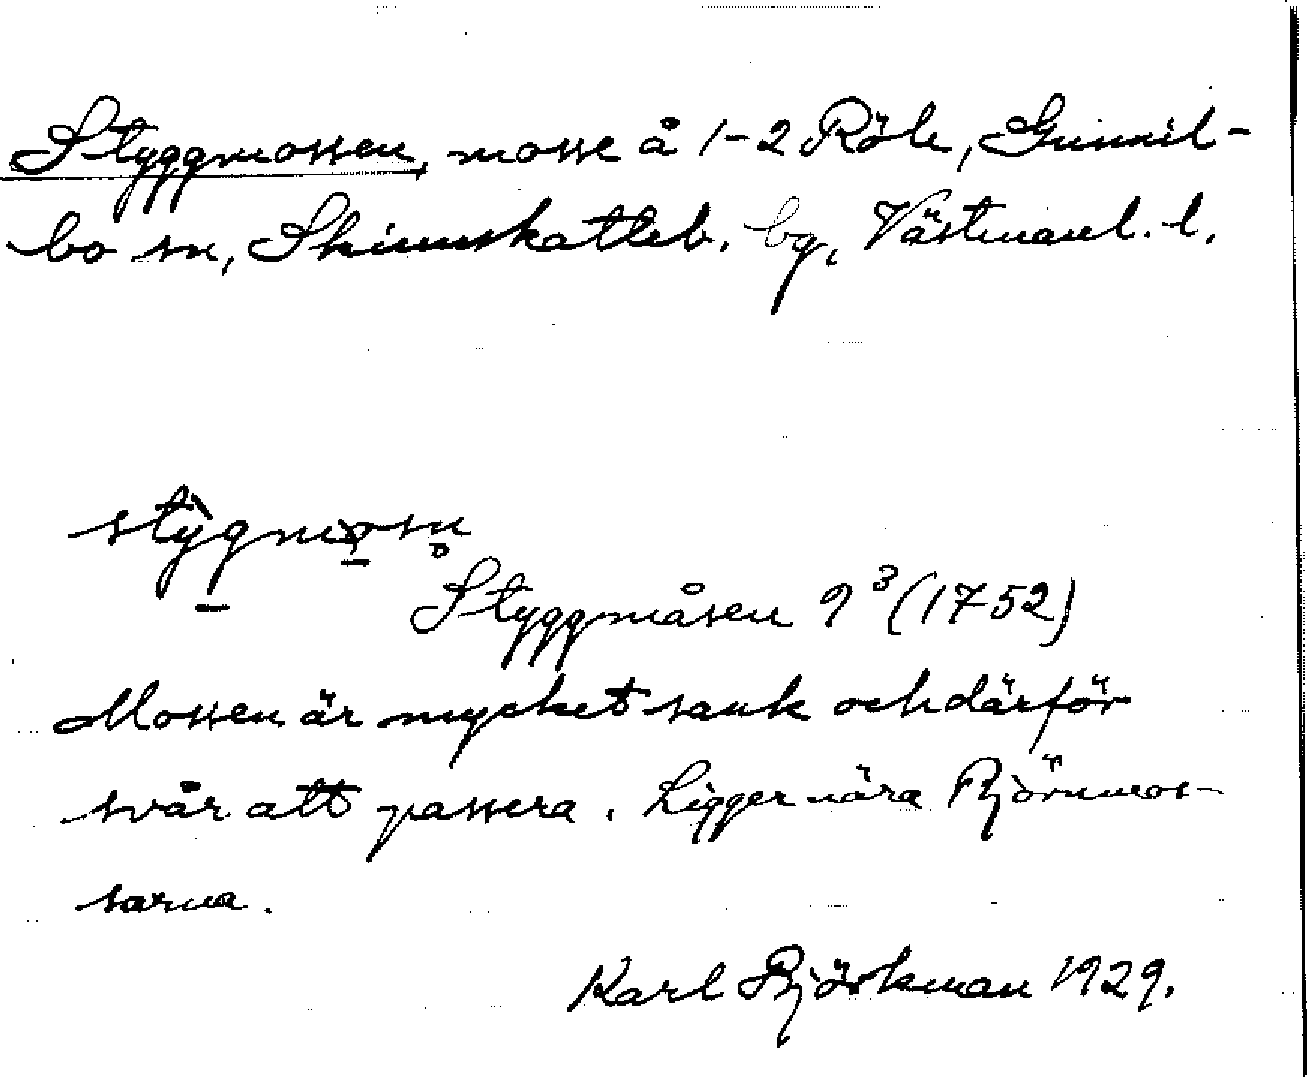 Styggmossen, mosse å 1-2 Röle, Gunnil-
bo sn, Skinnskatteb. bg, Västmanl. l.
stỳgmosn̥
Styggmåsen 9³ (1752)
Mossen är mycket sank och därför
svår att passera. Ligger nära Björnmos-
sarna.
Karl Björkman 1929.